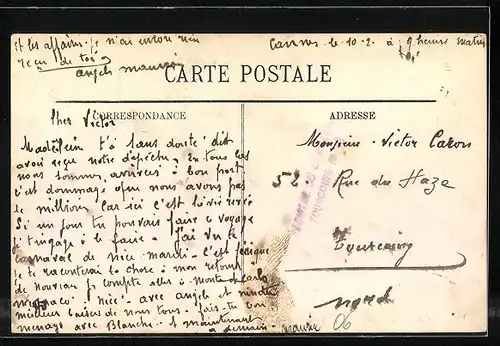 et les affaires. Je n'ai encore rien
reçu de toi
angèle maurice
Cannes le 10-2. à 9 heures matin
CARTE POSTALE
CORRESPONDANCE
ADRESSE
Cher Victor
Madeleine t'a sans doute dit
avoir reçu notre dépêche, En tous cas
nous sommes arrivés à bon port
c'est dommage que nous avons pas
le million, car ici c'est le rêve
Si un jour tu pouvais faire ce voyage
je t'engage à le faire. J'ai vu le
carnaval de nice mardi. c'est féerique
je te raconterai la chose à mon retour
de nouveau je compte aller à monte carlo
monaco nice avec angèle et
meilleurs baisers de nous tous. fais-tu bon
ménage avec Blanche. et maintenant
à demain. maurice
Monsieur Victor Caron
52 Rue du Haze
Tourcoing
nord
06